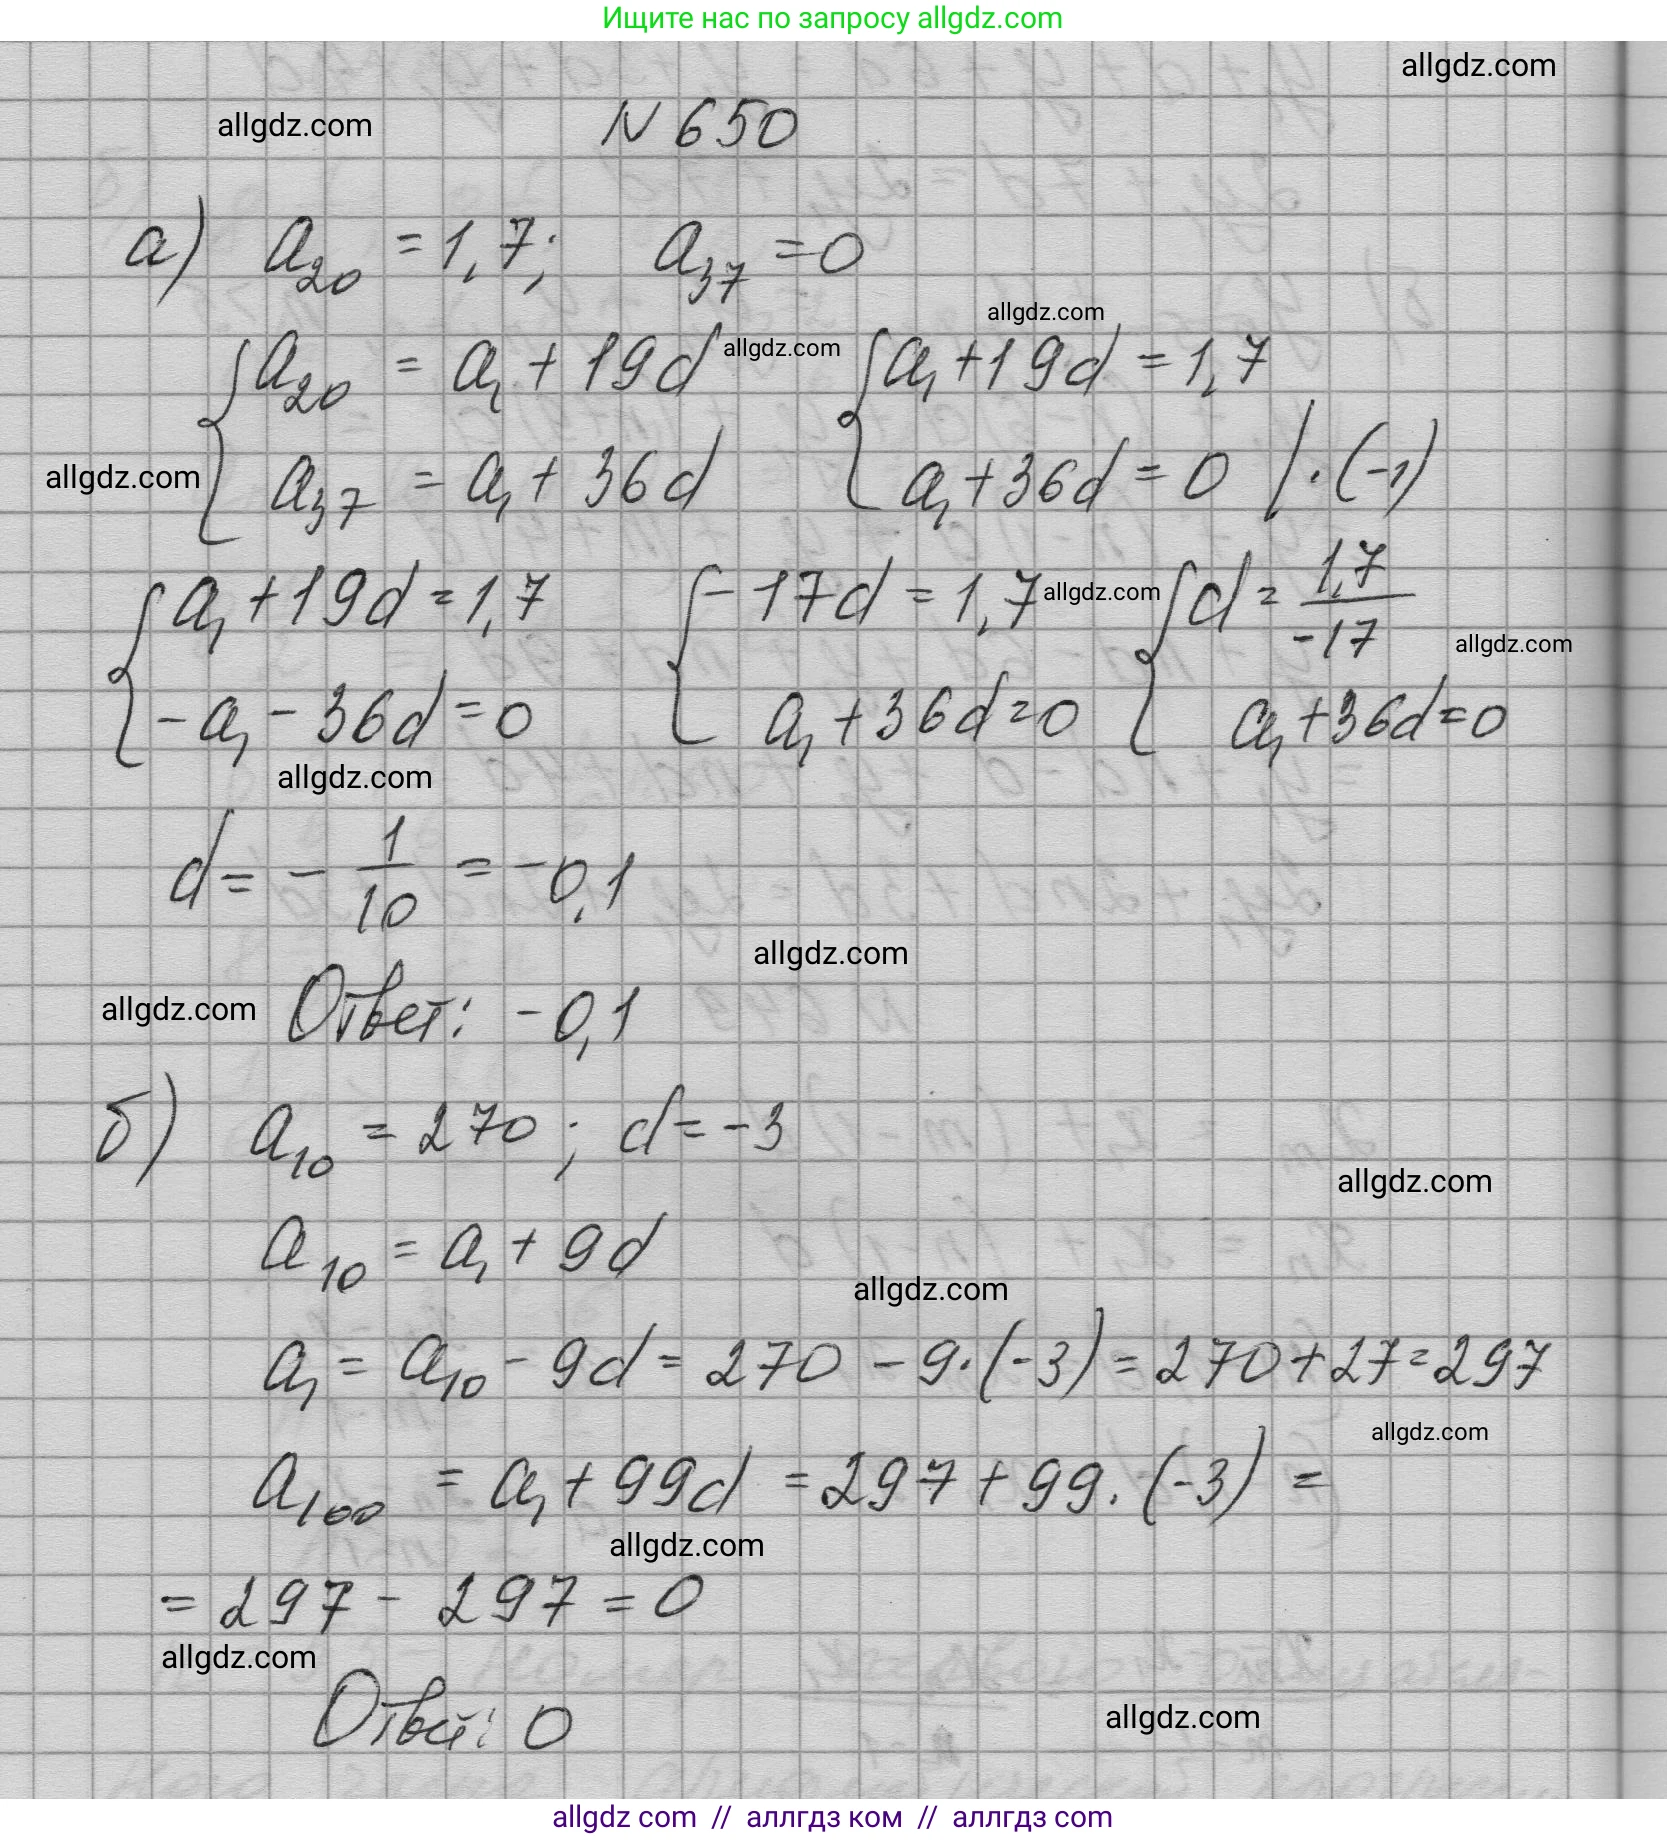 Ищите нас по запросу allgdz.com
allgdz.com
allgdz.com
N 650
а) a₂₀ = 1,7; a₃₇ = 0
allgdz.com
{ a₂₀ = a₁ + 19d allgdz.com { a₁ + 19d = 1,7
allgdz.com { a₃₇ = a₁ + 36d { a₁ + 36d = 0 / · (-1)
{ a₁ + 19d = 1,7 { -17d = 1,7 allgdz.com { d = 1,7/-17
allgdz.com
{ -a₁ - 36d = 0 { a₁ + 36d = 0 { a₁ + 36d = 0
allgdz.com
d = - 1/10 = -0,1
allgdz.com
allgdz.com Ответ: -0,1
б) a₁₀ = 270 ; d = -3
allgdz.com
a₁₀ = a₁ + 9d
allgdz.com
a₁ = a₁₀ - 9d = 270 - 9·(-3) = 270 + 27 = 297
allgdz.com
a₁₀₀ = a₁ + 99d = 297 + 99·(-3) =
allgdz.com
= 297 - 297 = 0
allgdz.com
Ответ: 0
allgdz.com
allgdz com // аллгдз ком // аллгдз com